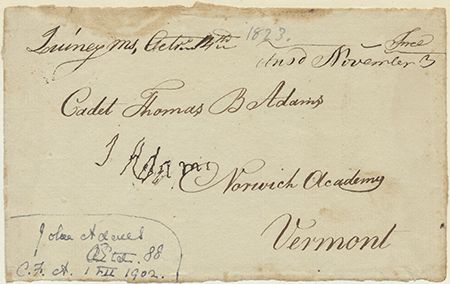 Quincy Ms, Octr. 14th 1823. Free
Ansd November 3
Cadet Thomas B Adams
J Adams
Norwich Academy
Vermont
John Adams
Ætat. 88
C. F. A. 1 III 1902.